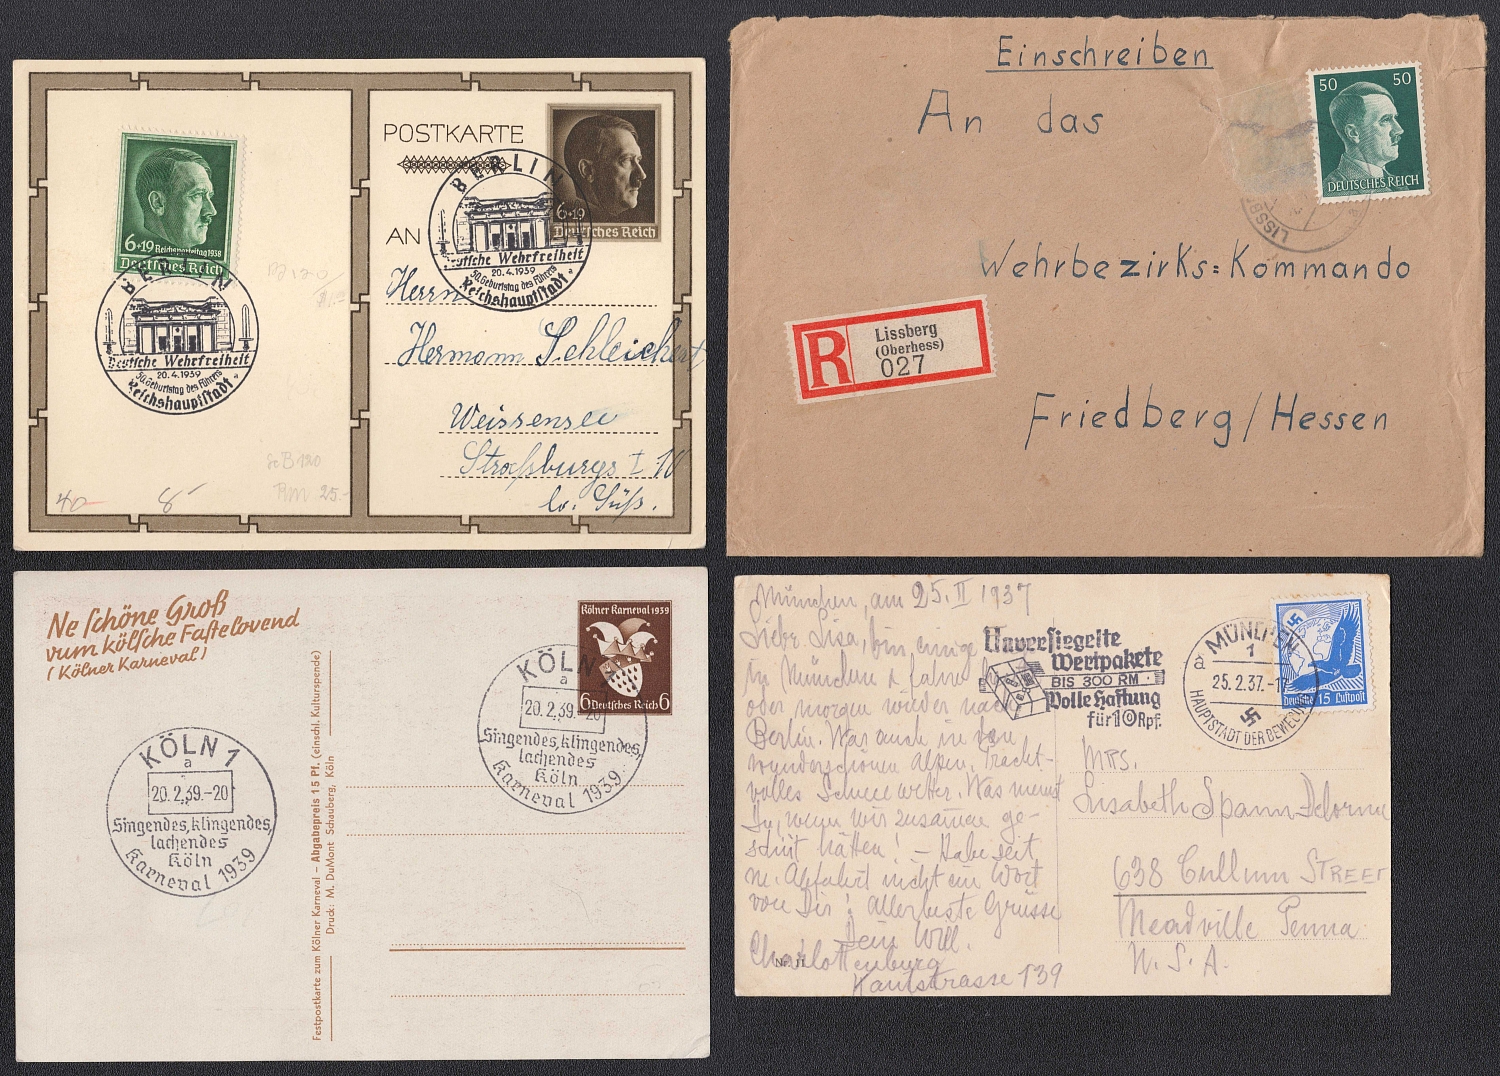 6+19 Reichsparteitag 1938
Deutsches Reich
BERLIN
Deutsche Wehrfreiheit
20.4.1939
50. Geburtstag des Führers
Reichshauptstadt
40
8
ScB 120
RM 25.-
POSTKARTE
6+19
Deutsches Reich
BERLIN
Deutsche Wehrfreiheit
20.4.1939
50. Geburtstag des Führers
Reichshauptstadt
AN
Herrn
Hermann Schleichert
Weissensee
Straßburgs I. 10
b. Süß.
Einschreiben
An das
50 50
DEUTSCHES REICH
LISSB
Wehrbezirks=Kommando
R
Lissberg
(Oberhess)
027
Friedberg/Hessen
Ne schöne Groß
vum kölsche Fastelovend
(Kölner Karneval)
Kölner Karneval 1939
6 Deutsches Reich 6
KÖLN 1
a
20.2.39.-20
Singendes, klingendes,
lachendes
Köln
Karneval 1939
KÖLN 1
a
20.2.39.-20
Singendes, klingendes,
lachendes
Köln
Karneval 1939
Festpostkarte zum Kölner Karneval – Abgabepreis 15 Pf. (einschl. Kulturspende)
Druck: M. DuMont Schauberg, Köln
München, am 25. II 1937
Liebe Lisa, bin einige
in München & fahre
oder morgen wieder nach
Berlin. War auch in den
wunderschönen Alpen. Pracht-
volles Schneewetter. Was meinst
Du, wenn wir zusammen ge-
skiit hätten! – Habe seit
m. Abfahrt nicht ein Wort
von Dir! Allerbeste Grüsse
Dein Will.
Charlottenburg
Kantstrasse 139
Nr. 11
Unversiegelte
Wertpakete
BIS 300 RM
Volle Haftung
für 10 Rpf.
MÜNCHEN
1
a
25.2.37.-1
HAUPTSTADT DER BEWEGUNG
Deutsche 15 Luftpost
MRS.
Lisabeth Spann-Delorme
638 Cullum STREET
Meadville Penna
U. S. A.